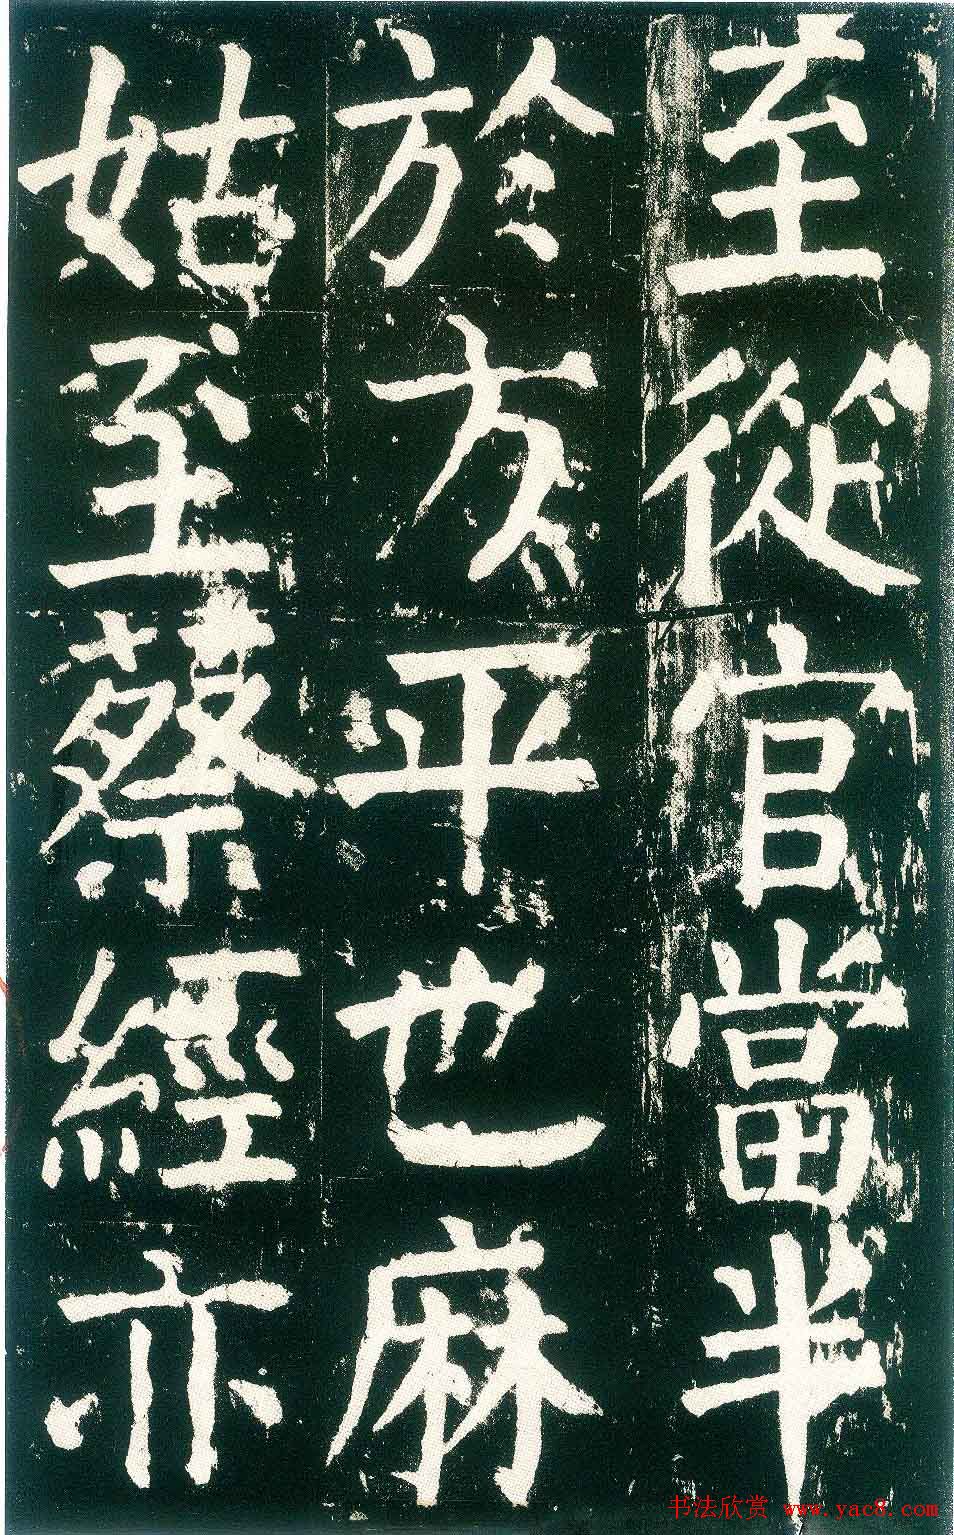 至從官當半
於方平也麻
姑至蔡經亦
书法欣赏 www.yac8.com